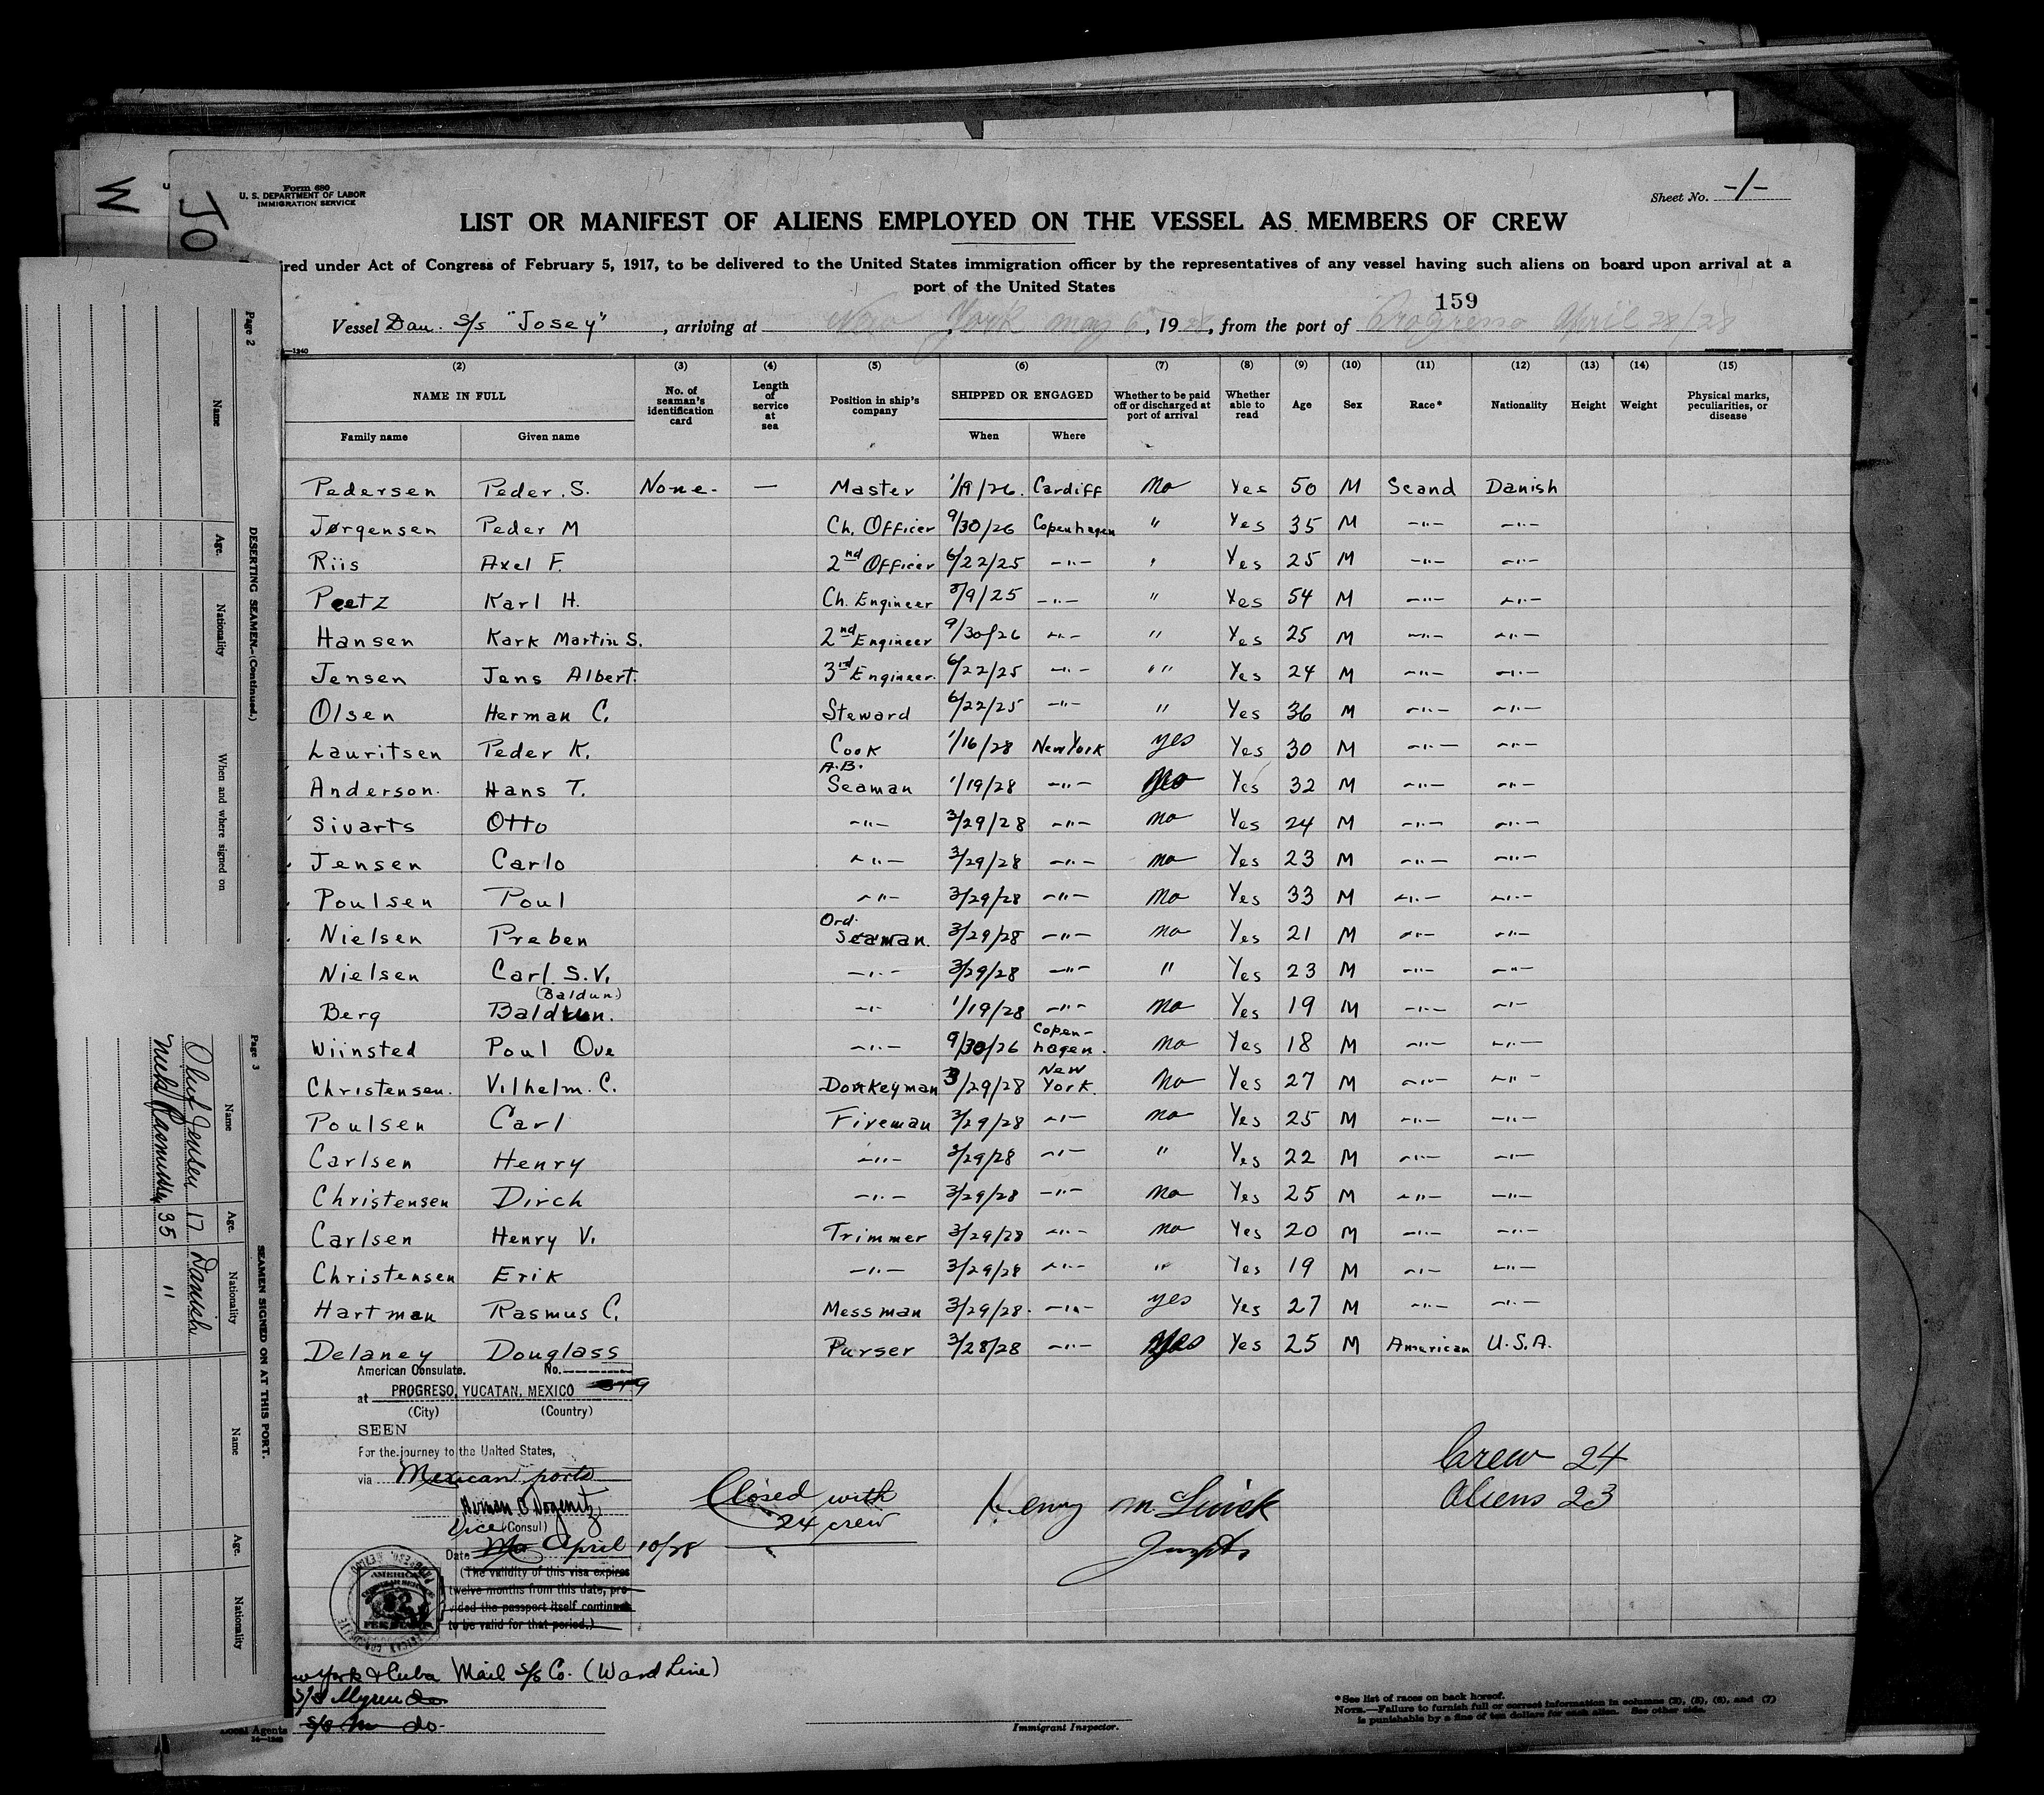 Form 680
U. S. DEPARTMENT OF LABOR
IMMIGRATION SERVICE
Sheet No. -1-
W
JO
LIST OR MANIFEST OF ALIENS EMPLOYED ON THE VESSEL AS MEMBERS OF CREW
ired under Act of Congress of February 5, 1917, to be delivered to the United States immigration officer by the representatives of any vessel having such aliens on board upon arrival at a
port of the United States
159
Vessel Dan. S/s "Josey", arriving at New York May 6, 1928, from the port of Progreso April 28/28
—1240
(2) (3) (4) (5) (6) (7) (8) (9) (10) (11) (12) (13) (14) (15)
NAME IN FULL No. of seaman's identification card Length of service at sea Position in ship's company SHIPPED OR ENGAGED Whether to be paid off or discharged at port of arrival Whether able to read Age Sex Race* Nationality Height Weight Physical marks, peculiarities, or disease
Family name Given name When Where
Pedersen Peder. S. None. — Master 1/19/26. Cardiff No Yes 50 M Scand Danish
Jørgensen Peder M Ch. Officer 9/30/26 Copenhagen " Yes 35 M —"— —"—
Riis Axel F. 2nd Officer 6/22/25 —"— " Yes 25 M —"— —"—
Peetz Karl H. Ch. Engineer 5/9/25 —"— " Yes 54 M —"— —"—
Hansen Kark Martin S. 2nd Engineer 9/30/26 —"— " Yes 25 M —"— —"—
Jensen Jens Albert. 3rd Engineer. 6/22/25 —"— " Yes 24 M —"— —"—
Olsen Herman C. Steward 6/22/25 —"— " Yes 36 M —"— —"—
Lauritsen Peder K. Cook 1/16/28 New York yes Yes 30 M —"— —"—
Anderson. Hans T. A.B. Seaman 1/19/28 —"— No Yes 32 M —"— —"—
Sivarts Otto —"— 3/29/28 —"— No Yes 24 M —"— —"—
Jensen Carlo —"— 3/29/28 —"— No Yes 23 M —"— —"—
Poulsen Poul —"— 3/29/28 —"— No Yes 33 M —"— —"—
Nielsen Preben Ord. Seaman. 3/29/28 —"— No Yes 21 M —"— —"—
Nielsen Carl S.V. —"— 3/29/28 —"— " Yes 23 M —"— —"—
Berg (Baldun) Baldun. —"— 1/19/28 —"— No Yes 19 M —"— —"—
Wiinsted Poul Ove —"— 9/30/26 Copen-hagen. No Yes 18 M —"— —"—
Christensen. Vilhelm. C. Donkeyman 3/29/28 New York. No Yes 27 M —"— —"—
Poulsen Carl Fireman 3/29/28 —"— No Yes 25 M —"— —"—
Carlsen Henry —"— 3/29/28 —"— " Yes 22 M —"— —"—
Christensen Dirch —"— 3/29/28 —"— No Yes 25 M —"— —"—
Carlsen Henry V. Trimmer 3/29/28 —"— No Yes 20 M —"— —"—
Christensen Erik —"— 3/29/28 —"— " Yes 19 M —"— —"—
Hartman Rasmus C. Messman 3/29/28. —"— yes Yes 27 M —"— —"—
Delaney Douglass Purser 3/28/28 —"— Yes Yes 25 M American U.S.A.
American Consulate. No.
at PROGRESO, YUCATAN, MEXICO
(City) (Country)
SEEN
For the journey to the United States,
via Mexican ports
Vice (Consul)
Date April 10/28
(The validity of this visa expires
twelve months from this date, pro-
vided the passport itself continues
to be valid for that period.)
Closed with
24 crew
Henry M.
Crew 24
Aliens 23
New York & Cuba Mail S/s Co. (Ward Line)
do.
do.
Local Agents
Immigrant Inspector.
*See list of races on back hereof.
NOTE.—Failure to furnish full or correct information in columns (2), (5), (6), and (7)
is punishable by a fine of ten dollars for each alien. See other side.
Page 2
DESERTING SEAMEN—(Continued.)
Name Age. Nationality When and where signed on
Page 3
SEAMEN SIGNED ON AT THIS PORT.
Name Age. Nationality Name Age. Nationality
Oluf Jensen 17 Danish
Niels Rasmussen 35 "